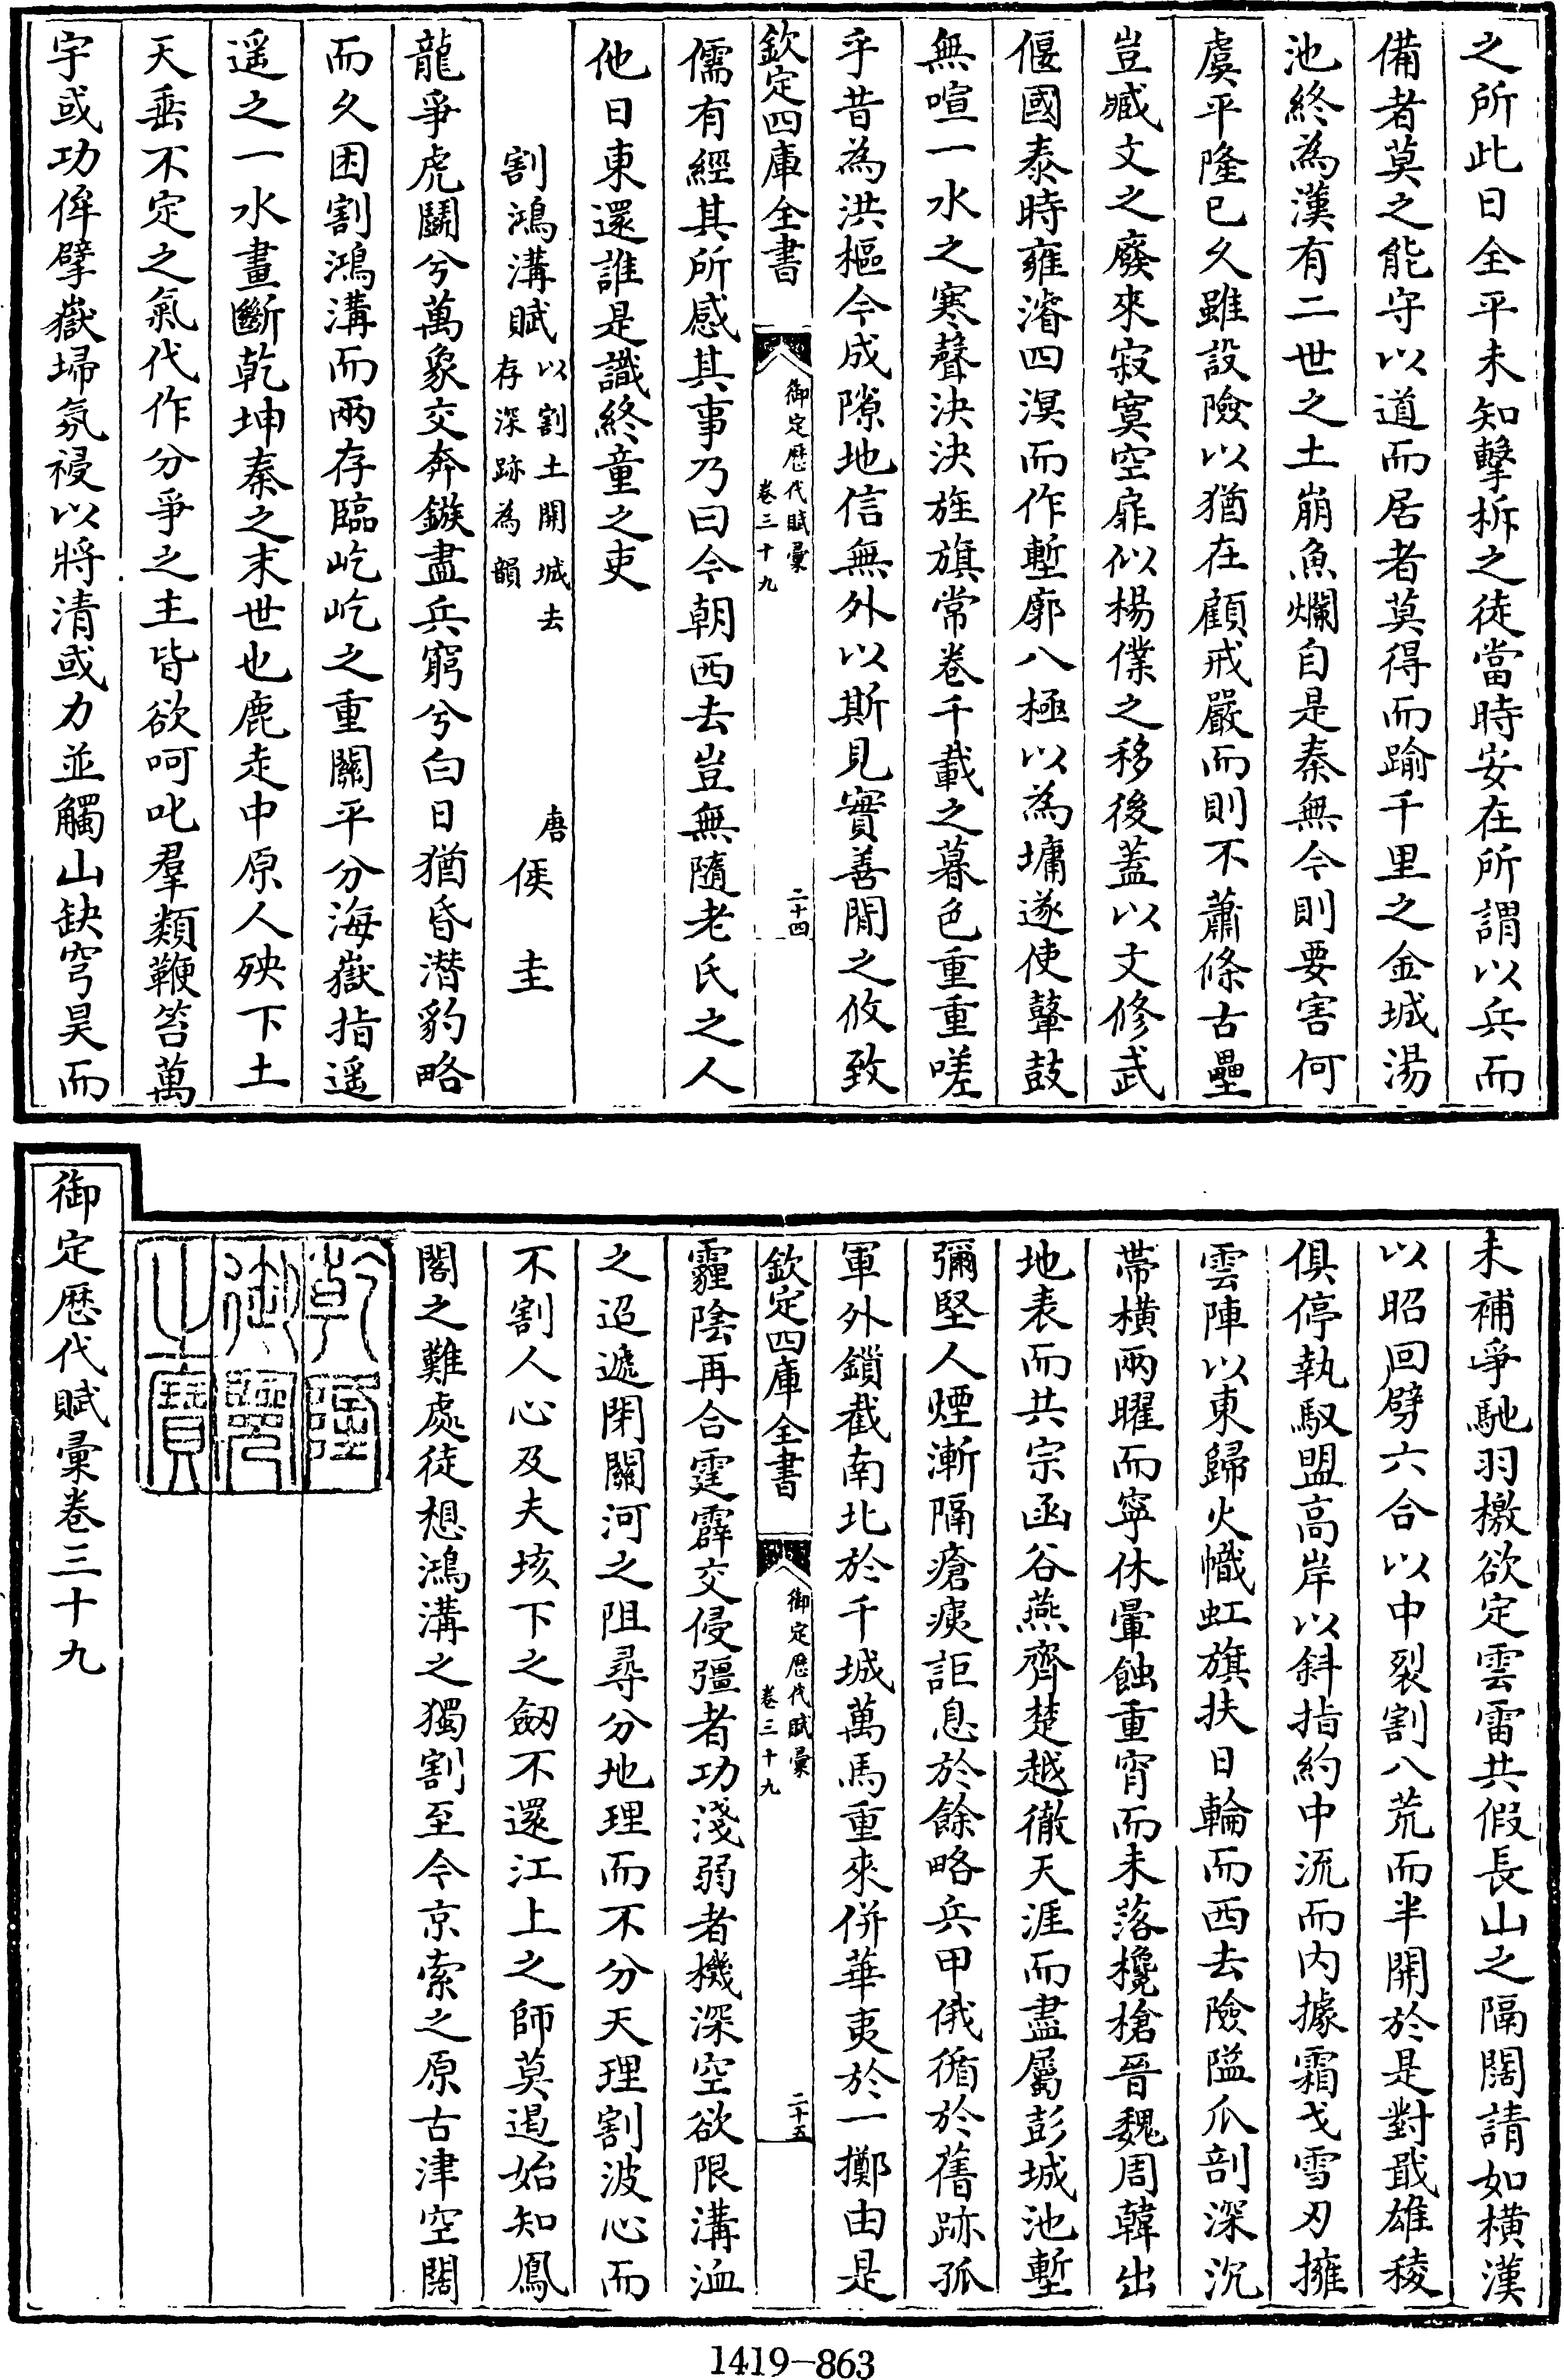 之所此日全平未知擊柝之徒當時安在所謂以兵而
備者莫之能守以道而居者莫得而踰千里之金城湯
池終為漢有二世之土崩魚爛自是秦無今則要害何
虞平隆已久雖設險以猶在顧戒嚴而則不蕭條古壘
豈臧文之廢來寂寞空扉似楊僕之移後蓋以文修武
偃國泰時雍濬四溟而作塹廓八極以為墉遂使鼙鼓
無喧一水之寒聲決決旌旗常卷千載之暮色重重嗟
乎昔為洪樞今成隙地信無外以斯見實善閉之攸致
欽定四庫全書
御定歷代賦彙
卷三十九
二十四
儒有經其所感其事乃曰今朝西去豈無隨老氏之人
他日東還誰是識終童之吏
割鴻溝賦
以割土開城去
存深跡為韻
唐
侯圭
龍爭虎鬭兮萬象交奔鏃盡兵窮兮白日猶昏潛豹略
而久困割鴻溝而兩存臨屹屹之重關平分海嶽指遥
遥之一水畫斷乾坤秦之末世也鹿走中原人殃下土
天垂不定之氣代作分爭之主皆欲呵叱羣類鞭笞萬
宇或功侔擘嶽埽氛祲以將清或力並觸山缺穹昊而
未補爭馳羽檄欲定雲雷共假長山之隔闊請如橫漢
以昭回劈六合以中裂割八荒而半開於是對戢雄稜
俱停執馭盟高岸以斜指約中流而内據霜戈雪刃擁
雲陣以東歸火幟虹旗扶日輪而西去險隘爪剖深沉
帶橫兩曜而寧休暈蝕重宵而未落欃槍晉魏周韓出
地表而共宗函谷燕齊楚越徹天涯而盡屬彭城池塹
彌堅人煙漸隔瘡痍詎息於餘略兵甲俄循於舊跡孤
軍外鎖截南北於千城萬馬重來併華夷於一擲由是
欽定四庫全書
御定歷代賦彙
卷三十九
二十五
霾陰再合霆霹交侵彊者功淺弱者機深空欲限溝洫
之迢遞閉關河之阻尋分地理而不分天理割波心而
不割人心及夫垓下之劒不還江上之師莫遏始知鳳
閣之難處徒想鴻溝之獨割至今京索之原古津空闊
乾隆
御覽
之寶
御定歷代賦彙卷三十九
1419-863